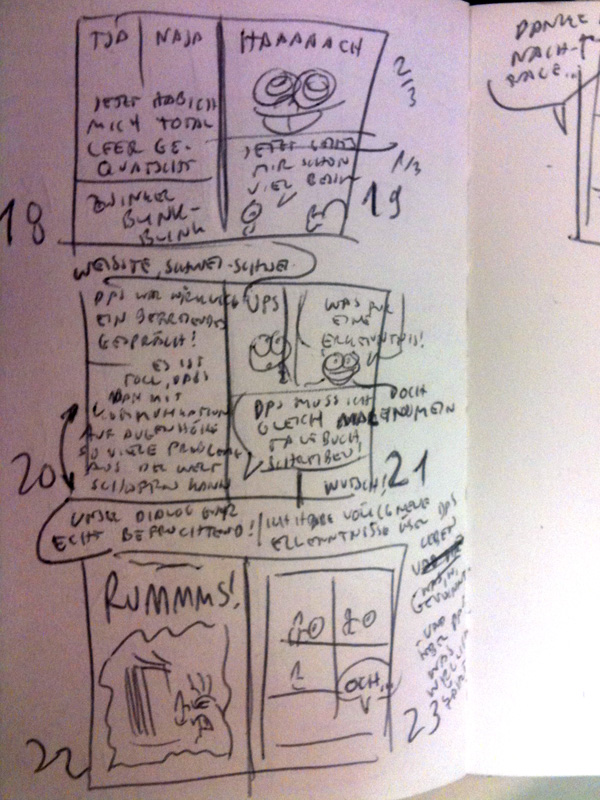 TJA
NAJA
JETZT HAB ICH
MICH TOTAL
LEER GE-
QUATSCHT
ZWINKER
BLINK-
BLINK
18
HAAAAACH
2/3
JETZT GEHTS
MIR SCHON
VIEL BESSER
1/3
19
WEISSTE,
DAS WAR WIRKLICH
EIN
GESPRÄCH!
ES IST
TOLL, DASS
MAN MIT
KOMMUNIKATION
AUF AUGENHÖHE
SO VIELE PROBLEME
AUS DER WELT
SCHAFFEN KANN
20
UPS
WAS FÜR
EINE
ERKENNTNIS!
DAS MUSS ICH
DOCH
GLEICH
MAL
IN MEIN
TAGEBUCH
SCHREIBEN!
WUTSCH!
21
UNSER DIALOG WAR
ECHT BEFRUCHTEND!
ICH HABE VÖLLIG NEUE
ERKENNTNISSE ÜBER DAS
LEBEN
UND
RUMMMS!
22
OCH...
23
DANKE
NACH-